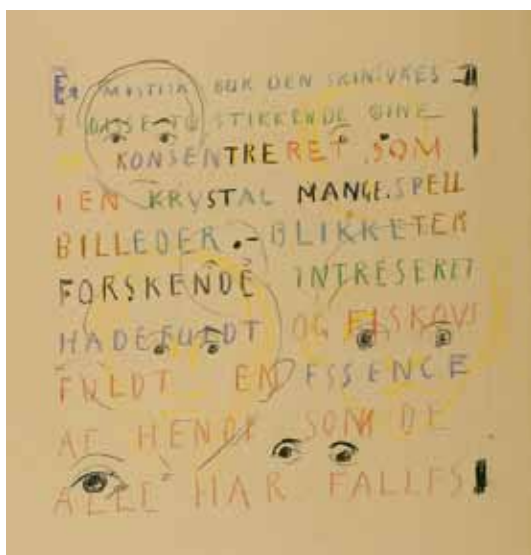 EN MYSTISK BUR DEN SKINSYKES
I DISSE TO STIKKENDE ØINE
KONSENTRERET SOM
I EN KRYSTAL MANGE SPEIL
BILLEDER.- BLIKKET ER
FORSKENDE INTRESERET
HADEFULDT OG ELSKOVS
FULDT EN ESSENCE
AF HENDE SOM DE
ALLE HAR FÆLLES